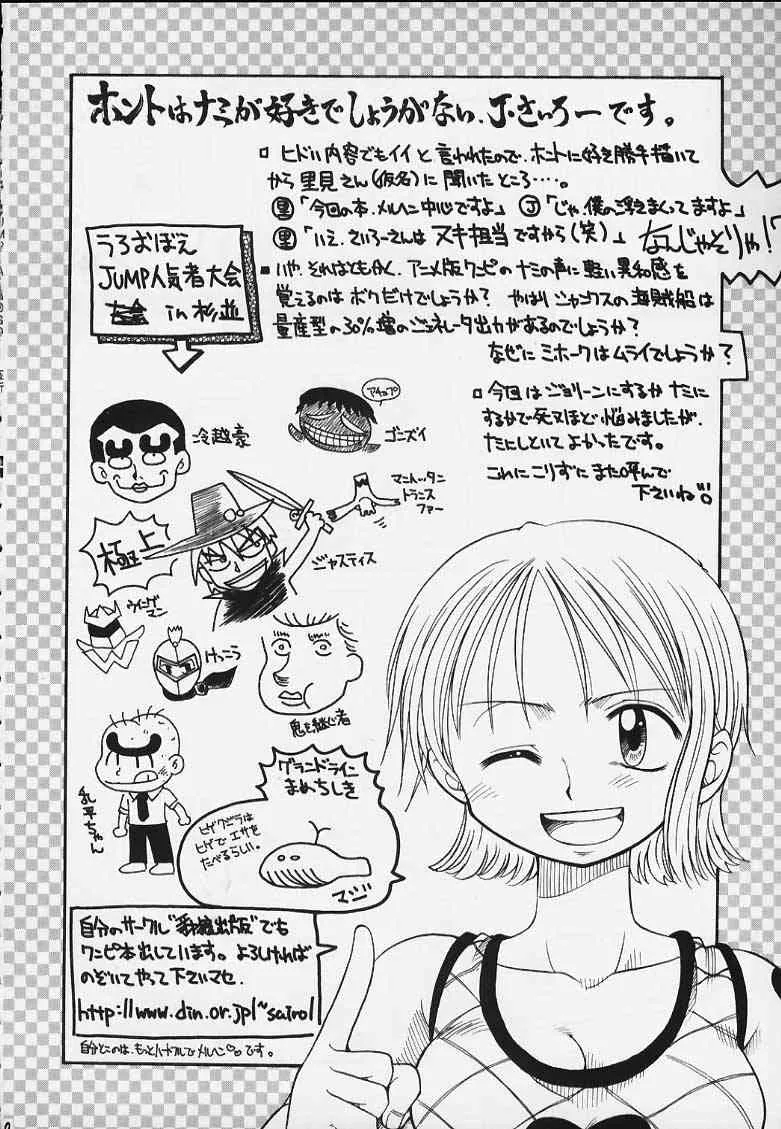 ホントはナミが好きでしょうがない、J・さいろーです。
ヒドい内容でもイイと言われたので、ホントに好き勝手描いて
から里見さん(仮名)に聞いたところ‥‥。
里「今回の本、メルヘン中心ですよ」 J「じゃ、僕の浮きまくってますよ」
里「いえ、さいろーさんはヌキ担当ですから(笑)」 なんじゃそりゃ!?
いや、それはともかく、アニメ版ワンピのナミの声に軽い異和感を
覚えるのはボクだけでしょうか? やはりシャンクスの海賊船は
量産型の30%増のジェネレータ出力があるのでしょうか?
なぜにミホークはムライでしょうか?
今回はジョリーンにするかナミに
するかで死ぬほど悩みましたが、
たにしといてよかったです。
これにこりずにまた呼んで
下さいね
うろおぼえ
JUMP人気者大会
in 杉並
冷越豪
アチョプ
ゴニズイ
マンハッタン
トランス
ファー
極上
ジャスティス
ウイングマン
けっこう
鬼を継ぐ者
乳平ちゃん
グランドライン
まめちしき
ヒゲクジラは
ヒゲでエサを
たべるらしい。
マジ
自分のサークル"番檀出版"でも
ワンピ本出しています。よろしければ
のぞいてやって下さいマセ。
http://www.din.or.jp/~sairo/
自分とこのは、もっとハートフルでメルヘン♡♡です。